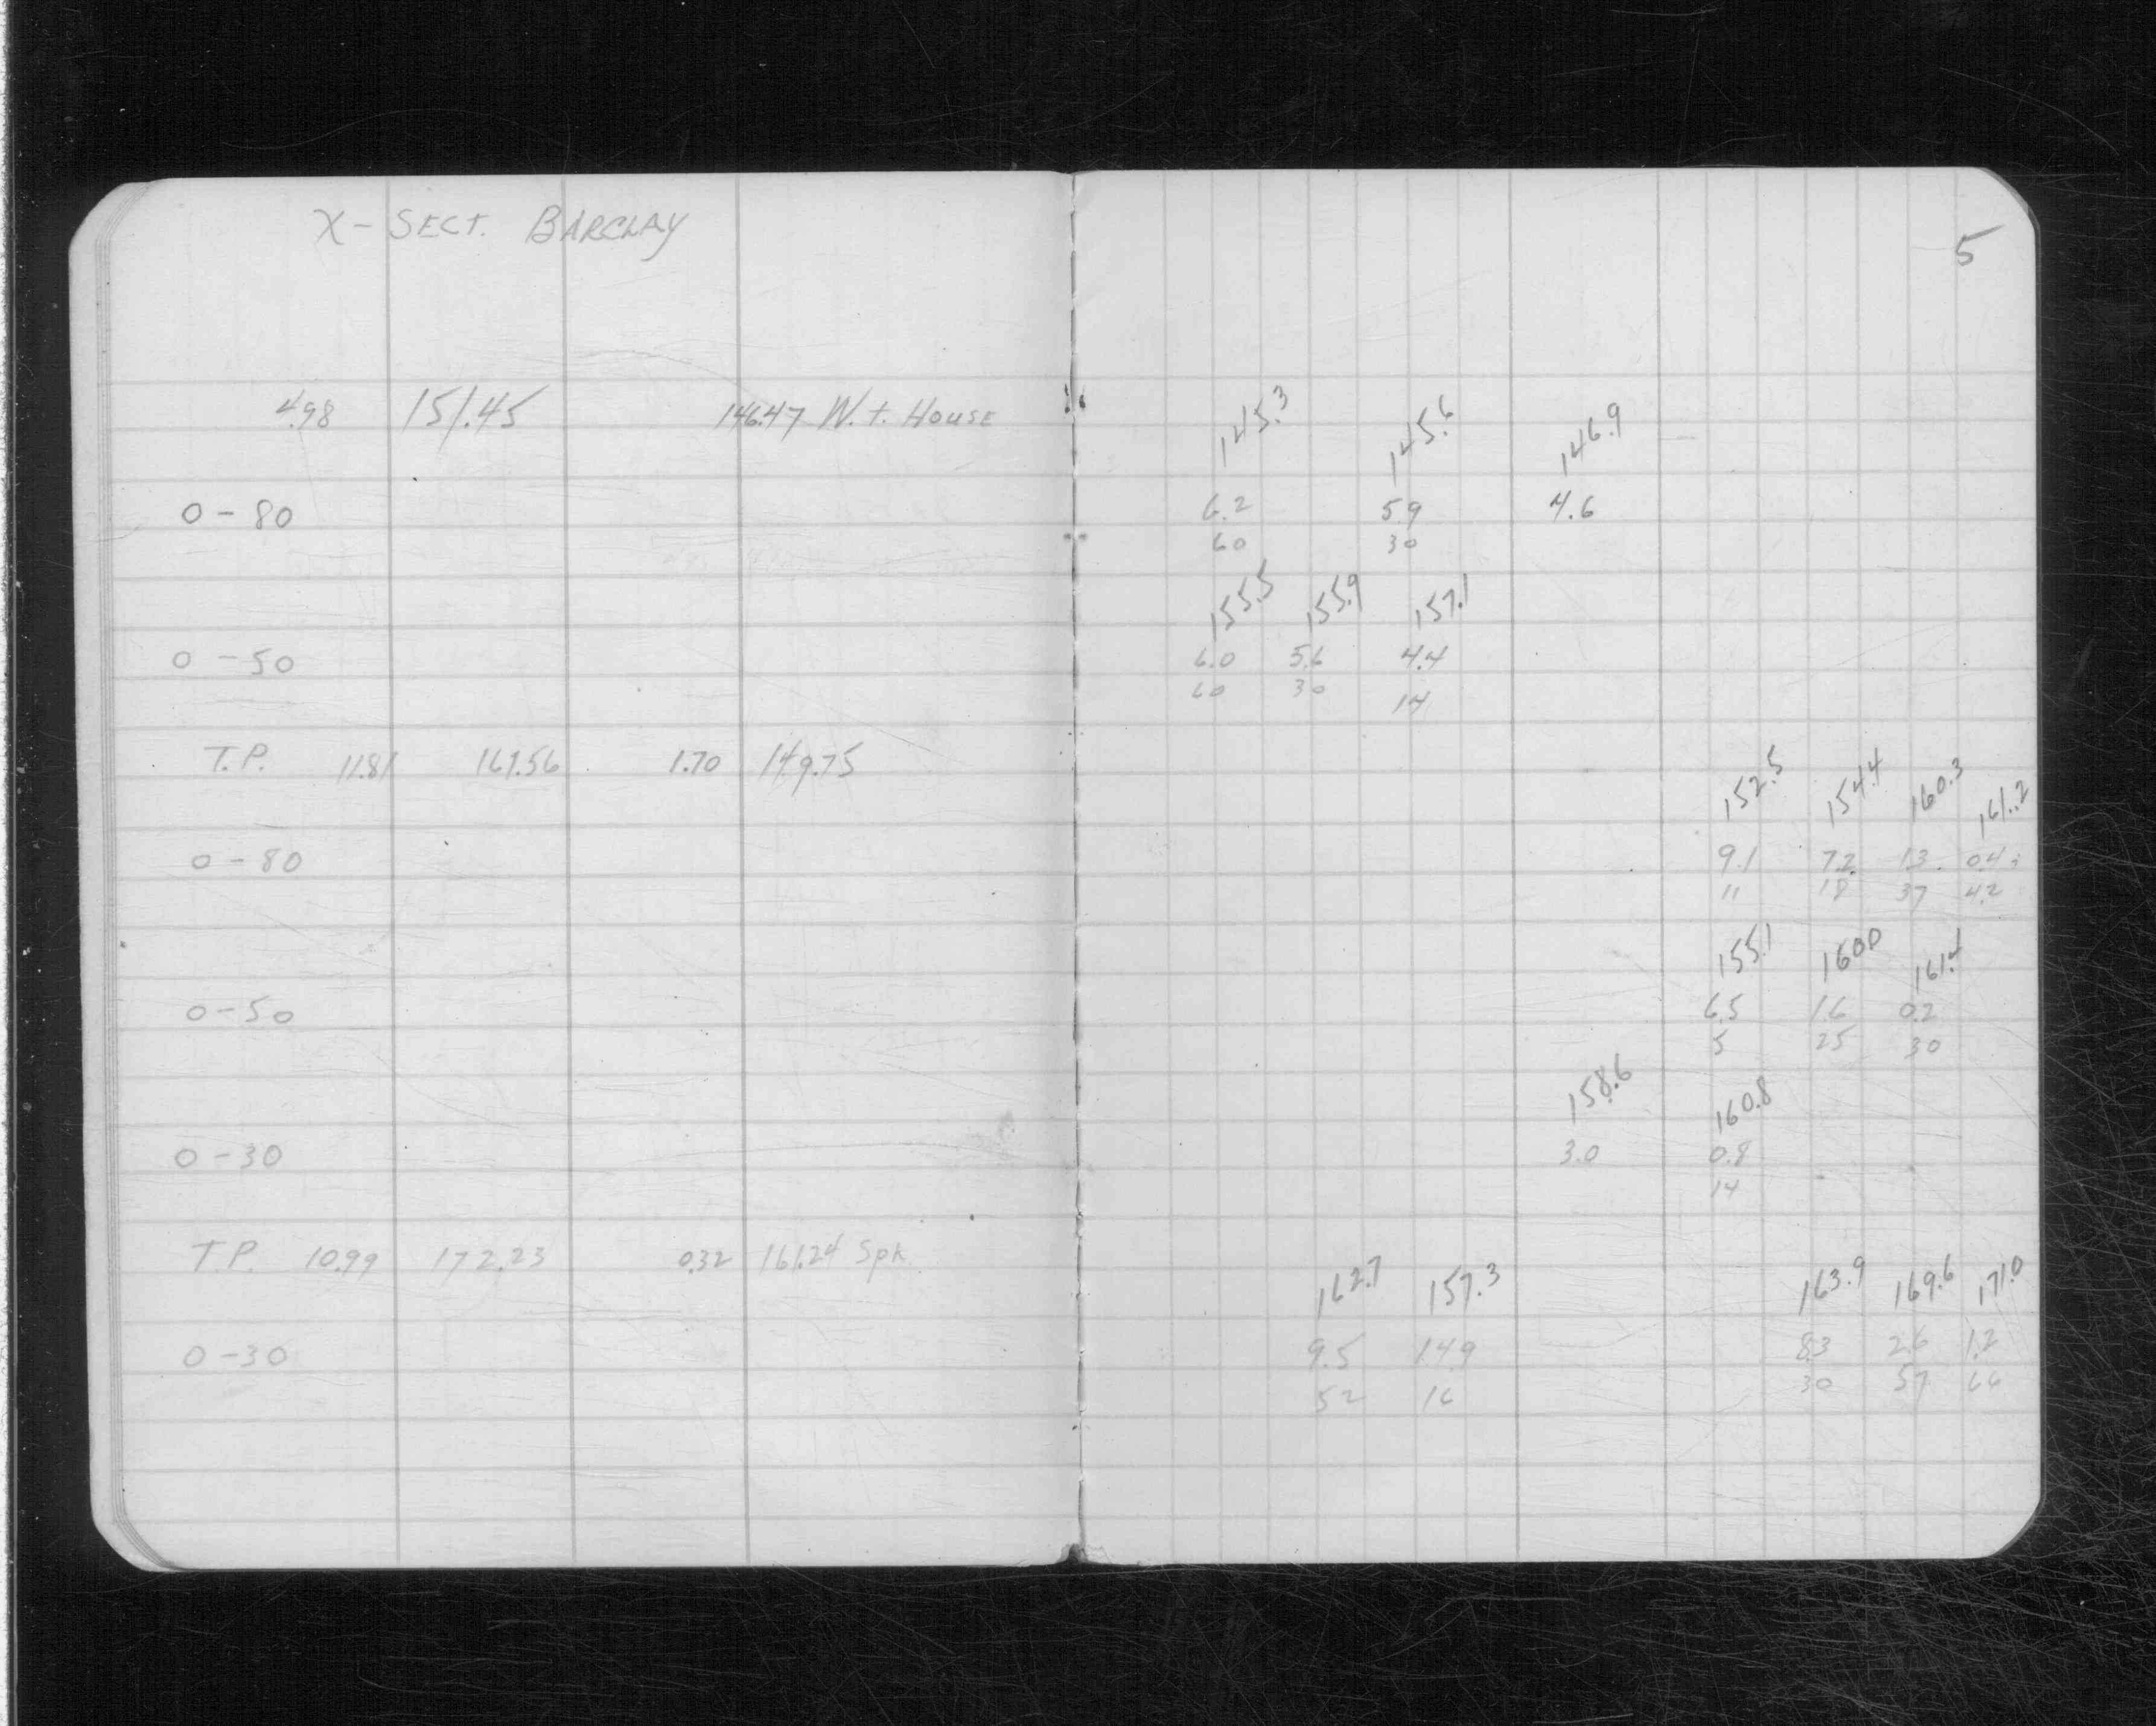 X - SECT. BARCLAY
5
4.98 151.45 146.47 W.t. HOUSE
145.3 145.6 146.9
0 - 80 6.2 5.9 4.6
60 30
155.5 155.9 157.1
0 - 50 6.0 5.6 4.4
60 30 14
T.P. 11.81 161.56 1.70 149.75
152.5 154.4 160.3 161.2
0 - 80 9.1 7.2 1.3 0.4
11 18 37 42
155.1 160.0 161.4
0 - 50 6.5 1.6 0.2
5 25 30
158.6 160.8
0 - 30 3.0 0.8
14
T.P. 10.99 172.23 0.32 161.24 Spk.
162.7 157.3 163.9 169.6 171.0
0 - 30 9.5 14.9 8.3 2.6 1.2
52 16 30 57 66